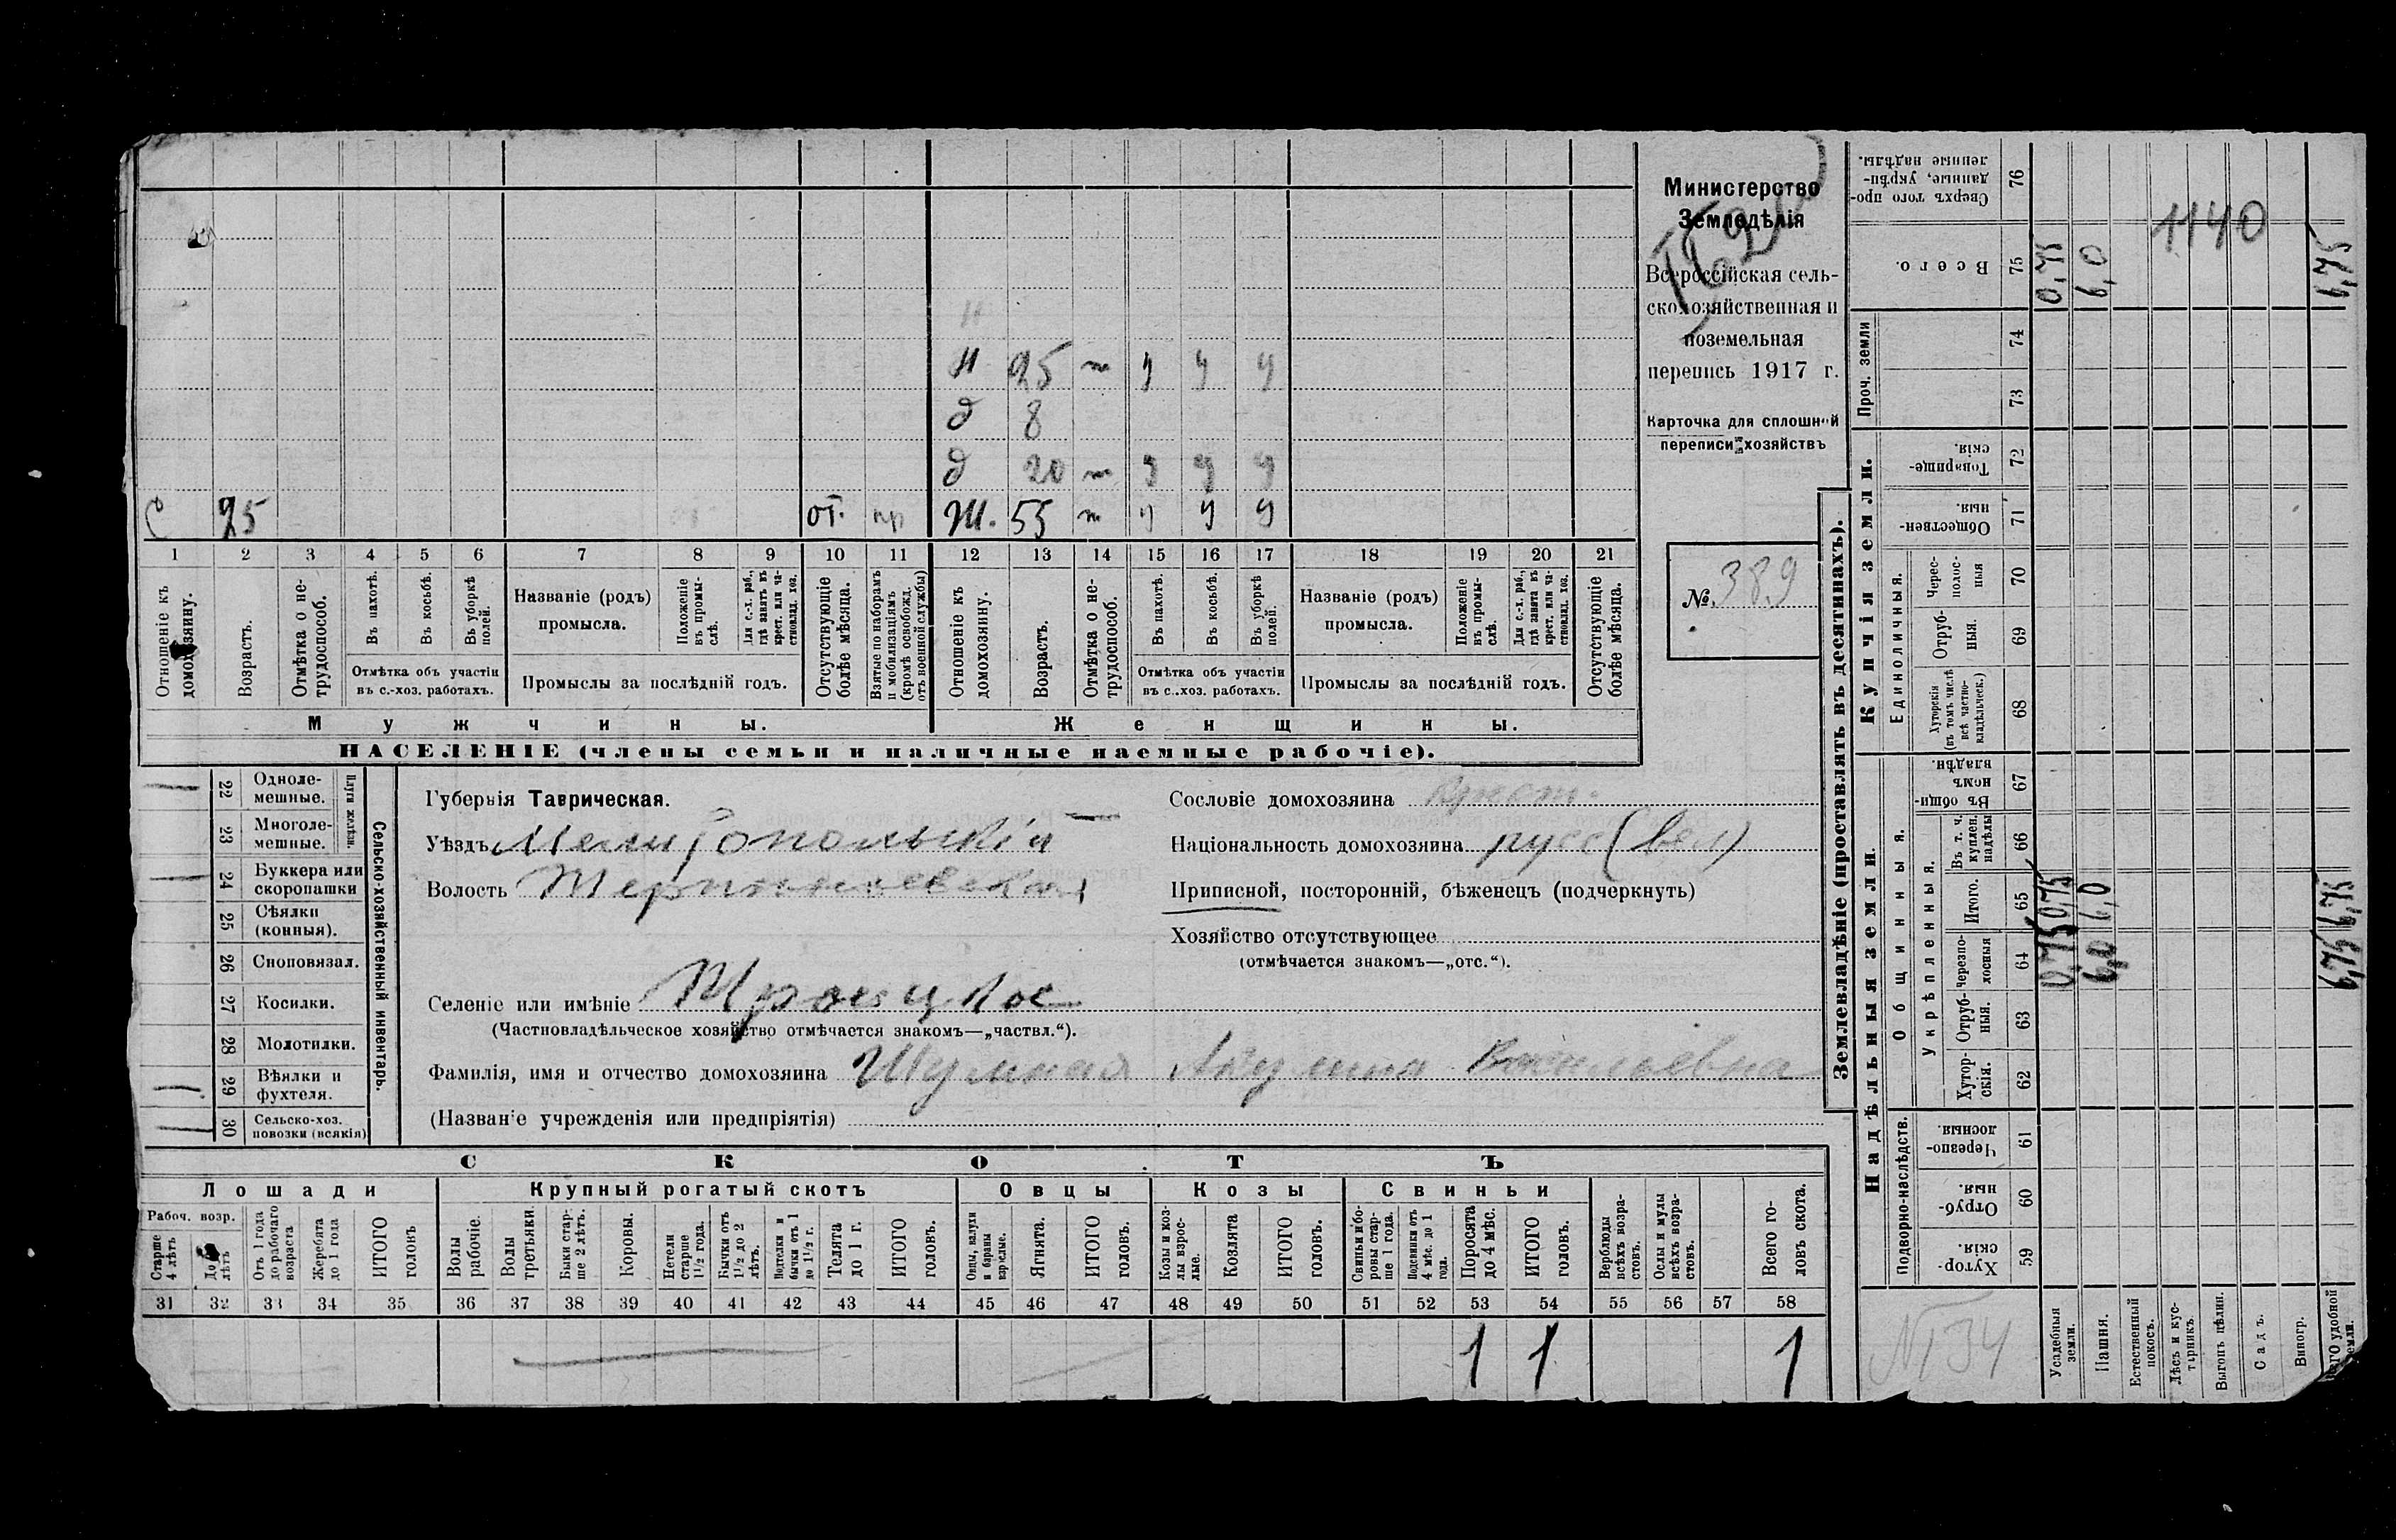 Министерство
Земледѣлія
Всероссійская сель-
скохозяйственная и
поземельная
перепись 1917 г.
Карточка для сплошной
переписи хозяйствъ
№ 389
Н 25 т у у у
д 8
д 20 т у у у
С 25 от. пр Ж. 55 т у у у
1 2 3 4 5 6 7 8 9 10 11 12 13 14 15 16 17 18 19 20 21
Отношеніе къ домохозяину.
Возрастъ.
Отмѣтка о не-трудоспособ.
Въ пахотѣ.
Въ косьбѣ.
Въ уборкѣ полей.
Отмѣтка объ участіи
въ с.-хоз. работахъ.
Названіе (родъ)
промысла.
Положеніе въ промы-слѣ.
Для с.-х. раб., гдѣ занятъ въ крест. или ча-стновлад. хоз.
Промыслы за послѣдній годъ.
Отсутствующіе болѣе мѣсяца.
Взятые по наборамъ и мобилизаціямъ (кромѣ освобожд. отъ военной службы)
Отношеніе къ домохозяину.
Возрастъ.
Отмѣтка о не-трудоспособ.
Въ пахотѣ.
Въ косьбѣ.
Въ уборкѣ полей.
Отмѣтка объ участіи
въ с.-хоз. работахъ.
Названіе (родъ)
промысла.
Положеніе въ промы-слѣ.
Для с.-х. раб., гдѣ занята въ крест. или ча-стновлад. хоз.
Промыслы за послѣдній годъ.
Отсутствующіе болѣе мѣсяца.
Мужчины. Женщины.
НАСЕЛЕНІЕ (члены семьи и наличные наемные рабочіе).
Сельско-хозяйственный инвентарь.
Плуги желѣзн.
22 Одноле-мешные.
23 Многоле-мешные.
24 Буккера или скоропашки
25 Сѣялки (конныя).
26 Сноповязал.
27 Косилки.
28 Молотилки.
29 Вѣялки и фухтеля.
30 Сельско-хоз. повозки (всякія)
Губернія Таврическая.
Уѣздъ Мелитопольскій
Волость Терпеньевская
Селеніе или имѣніе Троицкое
(Частновладѣльческое хозяйство отмѣчается знакомъ—„частвл.“).
Фамилія, имя и отчество домохозяина Шумная Акулина Васильевна
(Названіе учрежденія или предпріятія)
Сословіе домохозяина крест.
Національность домохозяина русс (вел)
Приписной, посторонній, бѣженецъ (подчеркнуть)
Хозяйство отсутствующее
(отмѣчается знакомъ—„отс.“).
СКОТЪ
Лошади Крупный рогатый скотъ Овцы Козы Свиньи
Рабоч. возр.
Старше 4 лѣтъ
До лѣтъ
Отъ 1 года до рабочаго возраста
Жеребята до 1 года
ИТОГО головъ
Волы рабочіе.
Волы третьяки.
Быки стар-ше 2 лѣтъ.
Коровы.
Нетели старше 1½ года.
Бычки отъ 1½ до 2 лѣтъ.
Подтелки и бычки отъ 1 до 1½ г.
Телята до 1 г.
ИТОГО головъ.
Овцы, валухи и бараны взрослые.
Ягнята.
ИТОГО головъ.
Козы и коз-лы взрос-лые.
Козлята
ИТОГО головъ.
Свиньи и бо-ровы стар-ше 1 года.
Подсвинки отъ 4 мѣс. до 1 года.
Поросята до 4 мѣс.
ИТОГО головъ.
Верблюды всѣхъ возра-стовъ.
Ослы и мулы всѣхъ возра-стовъ.
Всего го-ловъ скота.
31 32 33 34 35 36 37 38 39 40 41 42 43 44 45 46 47 48 49 50 51 52 53 54 55 56 57 58
1 1 1
Землевладѣніе (проставлять въ десятинахъ).
Надѣльныя земли.
Купчія земли.
Проч. земли
Подворно-наслѣдств.
Общинныя.
Укрѣпленныя.
Единоличныя.
Хутор-скія. 59
Отруб-ныя. 60
Черезпо-лосныя. 61
Хутор-скія. 62
Отруб-ныя. 63
Черезпо-лосныя 64
Итого. 65
Въ т. ч. куплен. надѣлы 66
Въ общи-номъ владѣн. 67
Хуторскія (въ томъ числѣ всѣ частно-владѣльческ.) 68
Отруб-ныя. 69
Черес-полос-ныя 70
Обществен-ныя. 71
Товарище-скія. 72
73
74
Всего. 75
Сверхъ того про-данные, укрѣп-ленные надѣлы. 76
Усадебныя земли. 0,75 0,75 0,75
Пашня. 6,0 6,0 6,0
Естественный покосъ.
Лѣсъ и кус-тарникъ.
Выгонъ цѣлин.
Садъ.
Виногр.
удобной земли. 6,75 6,75 6,75
1140
№ 34